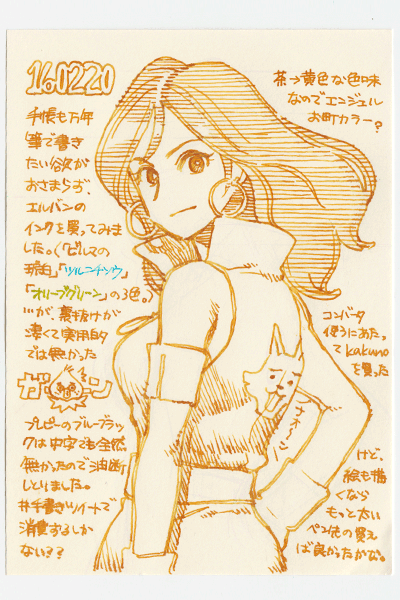 160220
手帳も万年
筆で書き
たい欲が
おさまらず、
エルバンの
インクを買ってみま
した。(「ビルマの
琥珀」「ツルニチソウ」
「オリーブグリーン」の3色。)
…が、裏抜けが
凄くて実用的
では無かった
ガーン
プレピーのブルーブラッ
クは中字でも全然
無かったので油断
しとりました。
#手書きツイートで
消費するしか
ない??
茶→黄色な色味
なのでエンジェル
お町カラー?
ナオーン
コンバータ
使うにあたっ
てkakuno
を買った
けど、
絵も描
くなら
もっと太い
ペン先の買え
ば良かったかな。